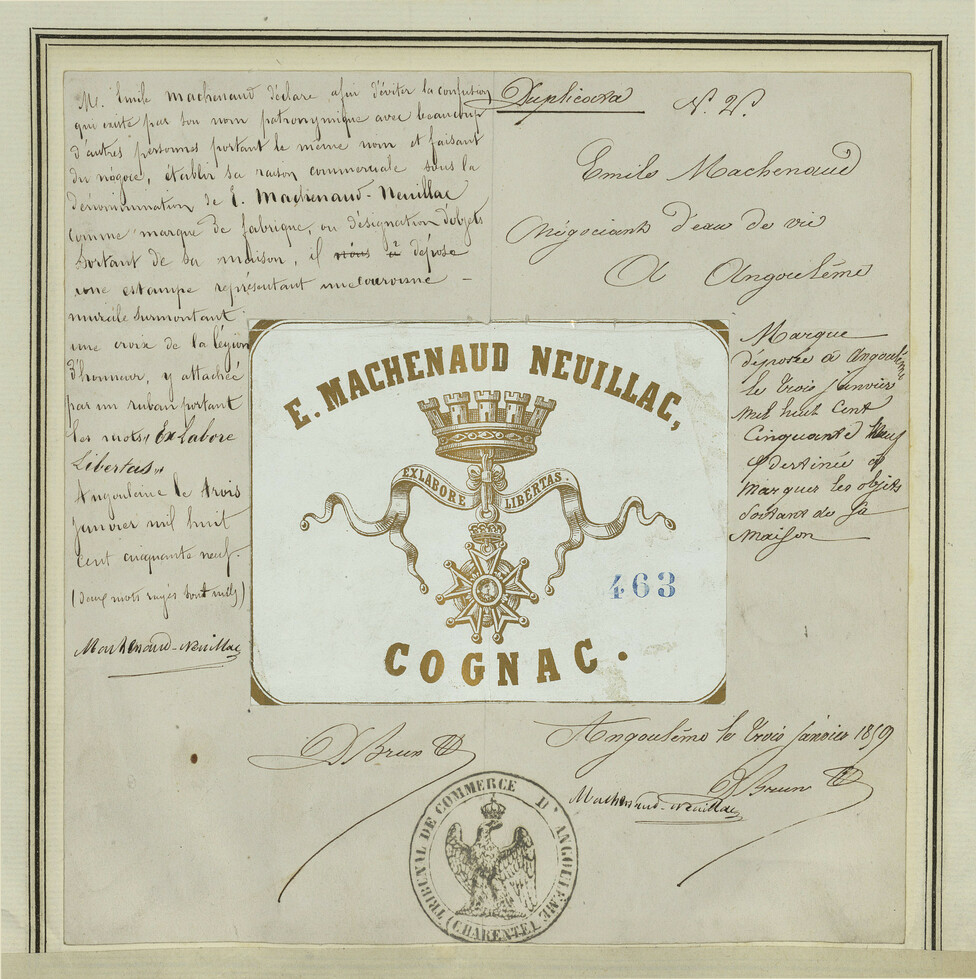 M. Emile Machenaud déclare afin d'éviter la confusion
qui existe par son nom patronymique avec beaucoup
d'autres personnes portant le même nom et faisant
du négoce, établir sa raison commerciale sous la
dénommination de E. Machenaud-Neuillac
comme marque de fabrique, ou désignation d'objets
sortant de sa maison, il dépose
une estampe représentant une couronne
murale surmontant
une croix de la légion
d'honneur, y attachée
par un ruban portant
les mots "Ex Labore
Libertas"
Angoulême le trois
janvier mil huit
cent cinquante neuf.
(deux mots rayés sont nuls)
Machenaud-Neuillac
Duplicata
N. 2.
Emile Machenaud
Négociant d'eau de vie
A Angoulême
E. MACHENAUD NEUILLAC,
EX LABORE LIBERTAS.
463
COGNAC.
Marque
déposée à Angoulême
le trois janvier
mil huit cent
cinquante neuf
& destinée à
marquer les objets
sortant de sa
maison
Angoulême le trois janvier 1859
D Brun
D Brun
Machenaud-Neuillac
TRIBUNAL DE COMMERCE D'ANGOULÊME
(CHARENTE)